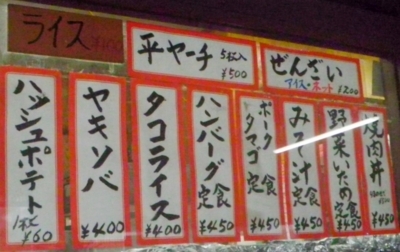 ライス ¥100
平ヤーチ 5枚入 ¥500
ぜんざい
アイス・ホット ¥200
焼肉丼
¥450
野菜いため定食
¥450
みそ汁定食
¥450
ポークタマゴ定食
¥450
ハンバーグ定食
¥450
タコライス
¥400
ヤキソバ
¥400
ハッシュポテト
1枚 ¥60